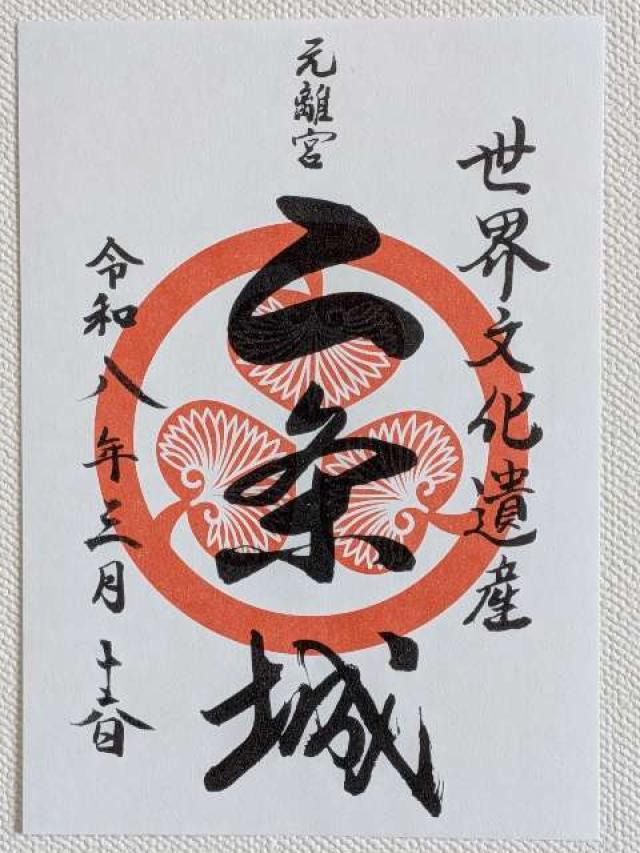 世界文化遺産
元離宮
二条城
令和八年三月十六日